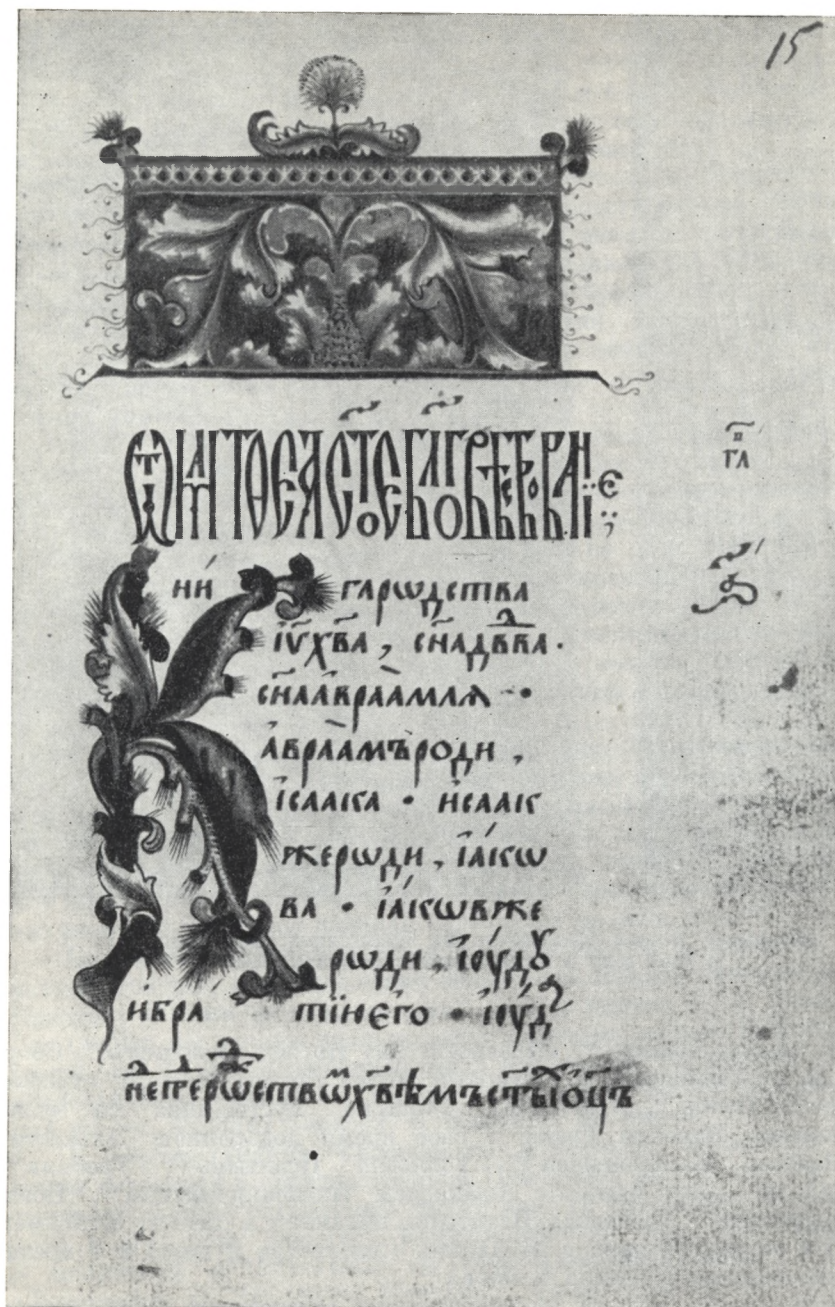 Ѿ МАТѲЕЯ СТ҃ОЕ БЛ҃ГОВѢСТВОВАНІЕ
15
Кни́га рѡдства
і҆у҃ хв҃а , сн҃а дв҃ва ·
сн҃а а҆враа́млѧ ·
а҆враа́мъ роди ,
і҆саака · и҆саак
же рѡди , і҆а́кѡ
ва · і҆а́кѡв же
рѡди , і҆оу́дꙋ
и҆ братїи е҆го · і҆оу́д
нⷣе пре рⷤѡествѡⷨ хв҃ѣмъ ст҃ыⷯ о҃ц҃ъ